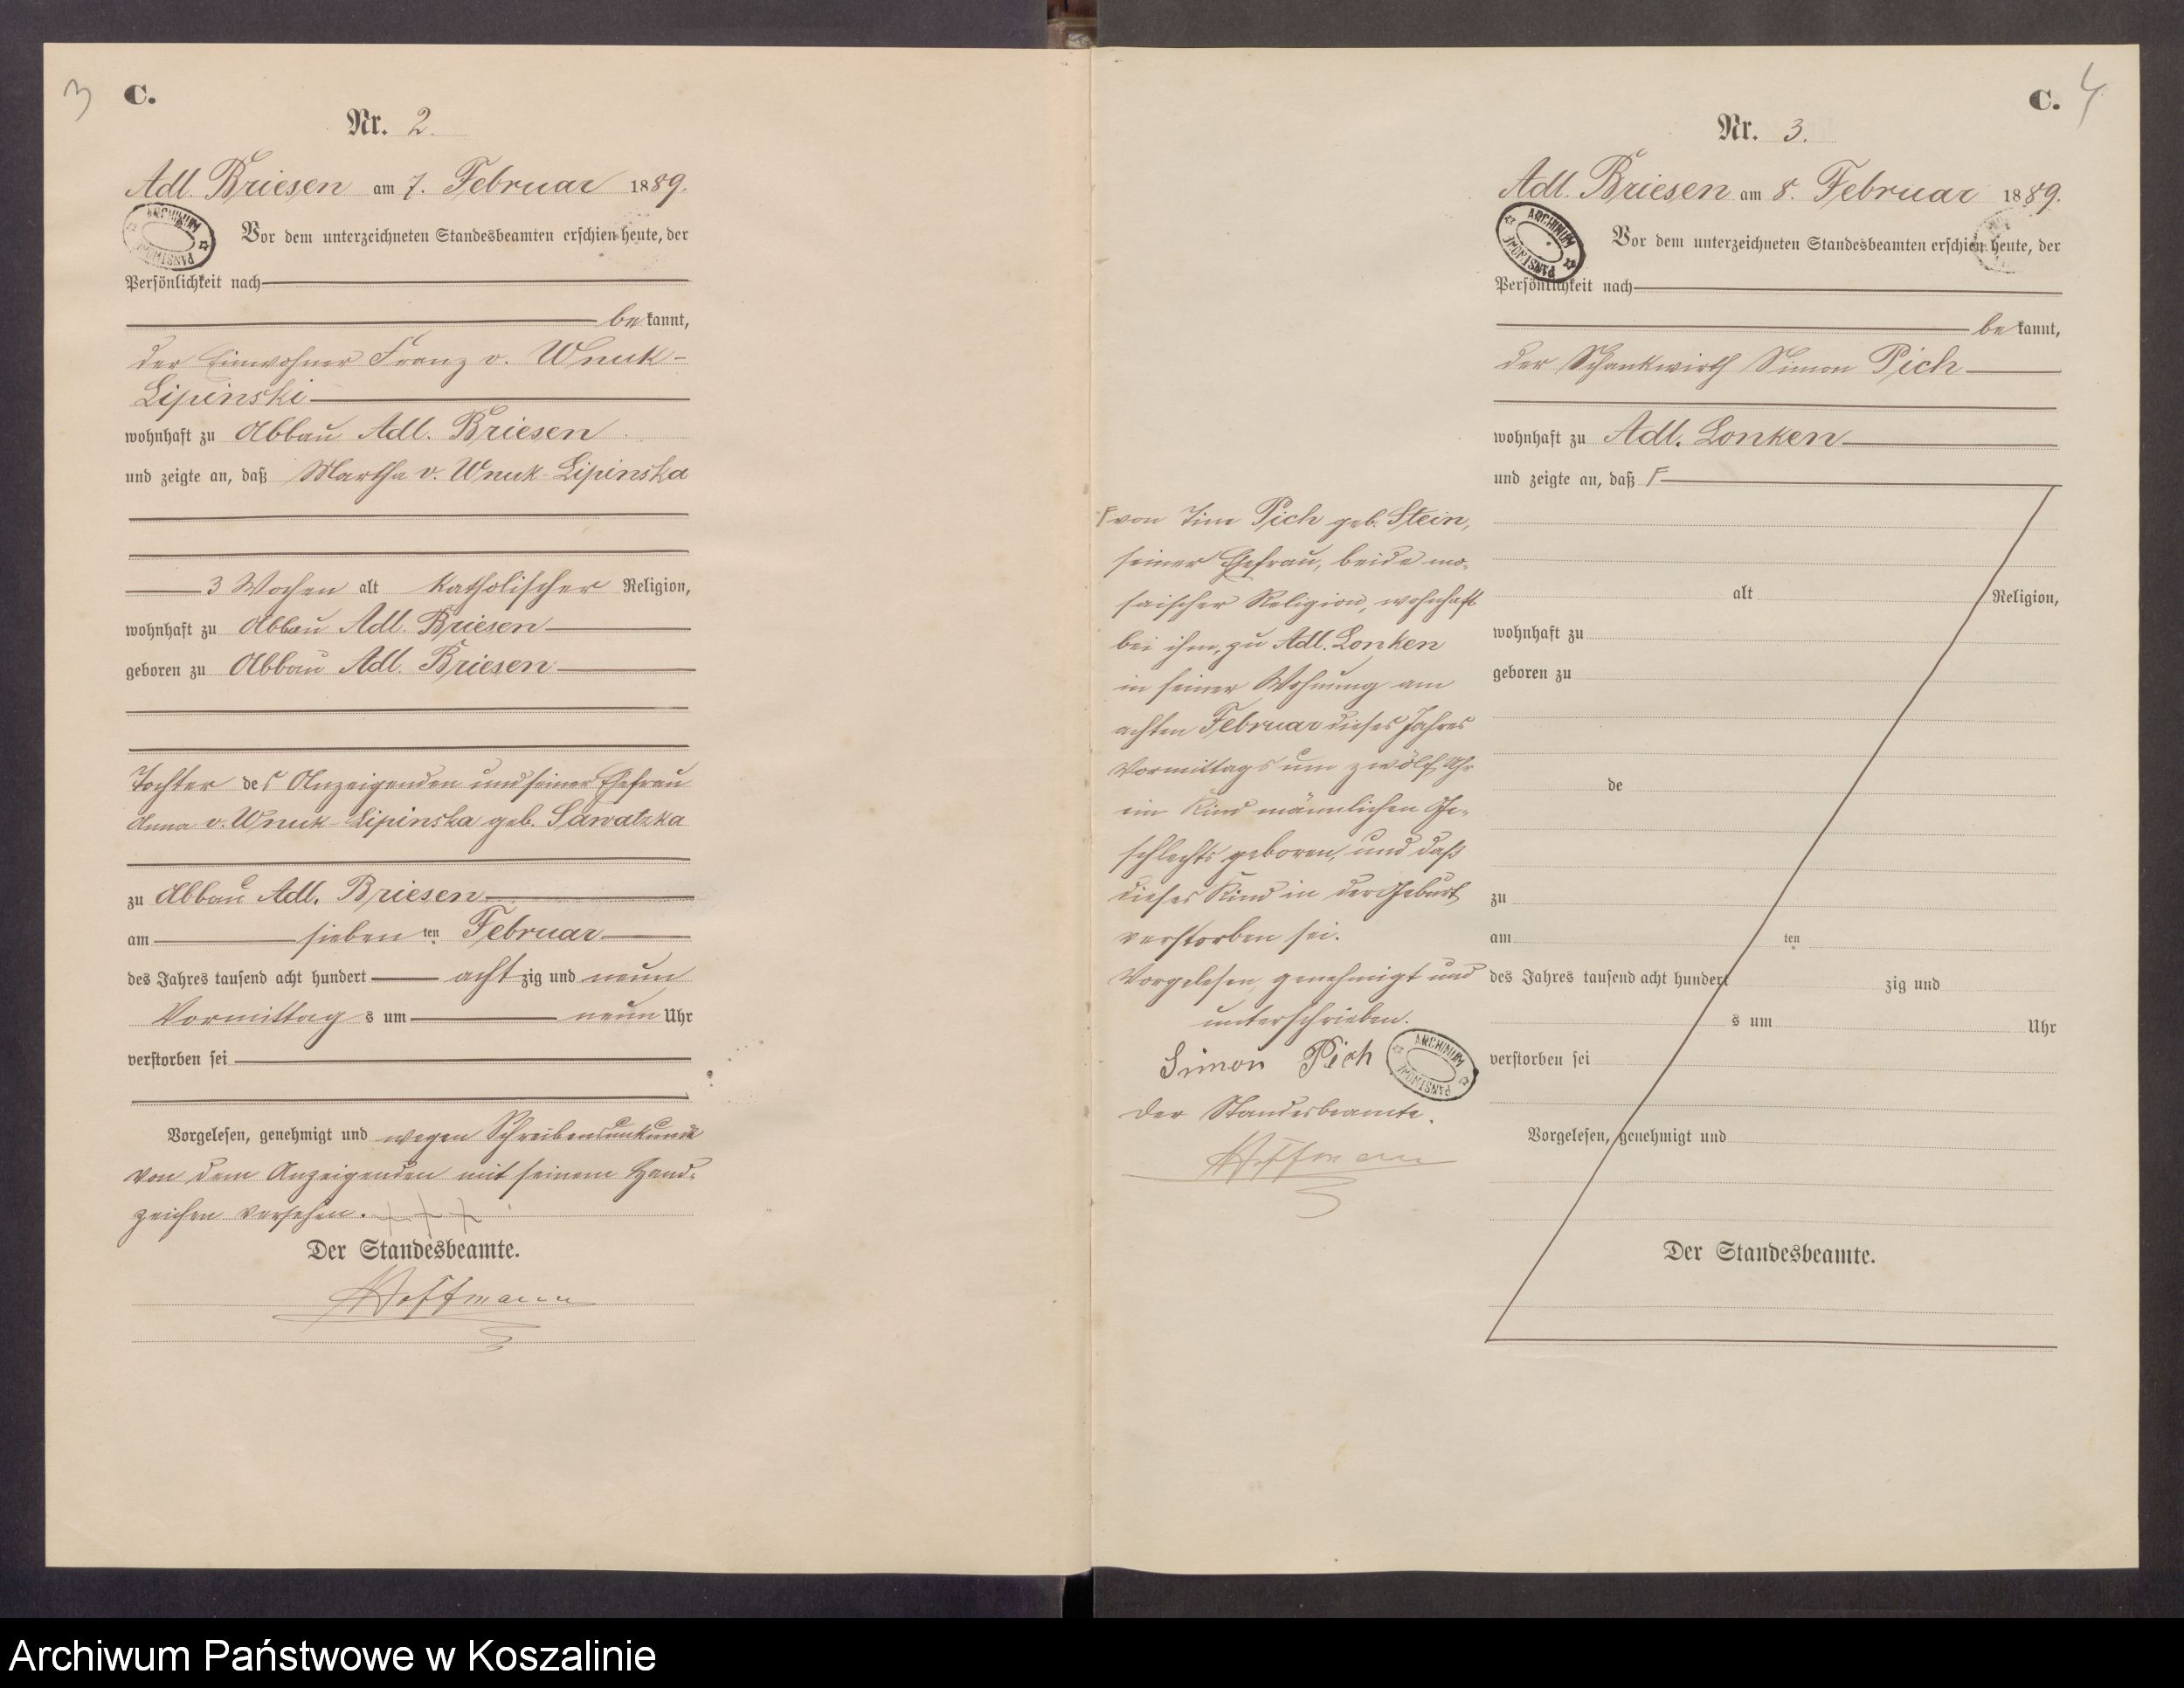 3 C.
Nr. 2.
Adl. Briesen am 7. Februar 1889.
Vor dem unterzeichneten Standesbeamten erschien heute, der
Persönlichkeit nach
be kannt,
der Einwohner Franz v. Wnuk-
Lipinski
wohnhaft zu Abbau Adl. Briesen
und zeigte an, daß Martha v. Wnuk-Lipinska
3 Wochen alt katholischer Religion,
wohnhaft zu Abbau Adl. Briesen
geboren zu Abbau Adl. Briesen
Tochter des Anzeigenden und seiner Ehefrau
Anna v. Wnuk-Lipinska geb. Sawatzka
zu Abbau Adl. Briesen
am sieben ten Februar
des Jahres tausend acht hundert acht zig und neun
Vormittag s um neun Uhr
verstorben sei
Vorgelesen, genehmigt und wegen Schreibensunkunde
von dem Anzeigenden mit seinem Hand-
zeichen versehen. +++
Der Standesbeamte.
Hoffmann
ARCHIWUM PAŃSTWOWE
C. 4
Nr. 3.
Adl. Briesen am 8. Februar 1889.
Vor dem unterzeichneten Standesbeamten erschien heute, der
ARCHIWUM PAŃSTWOWE
Persönlichkeit nach
be kannt,
der Schankwirth Simon Pich
wohnhaft zu Adl. Lonken
und zeigte an, daß
von Pich geb. Stein,
seiner Ehefrau, beide mo-
saischer Religion, wohnhaft
bei ihm, zu Adl. Lonken
in seiner Wohnung am
achten Februar dieses Jahres
Vormittags um zwölf Uhr
ein Kind männlichen Ge-
schlechts geboren, und daß
dieses Kind in der Geburt
verstorben sei.
Vorgelesen, genehmigt und
unterschrieben.
Simon Pich
ARCHIWUM PAŃSTWOWE
Der Standesbeamte.
Hoffmann
alt Religion,
wohnhaft zu
geboren zu
de
zu
am ten
des Jahres tausend acht hundert zig und
s um Uhr
verstorben sei
Vorgelesen, genehmigt und
Der Standesbeamte.
Archiwum Państwowe w Koszalinie